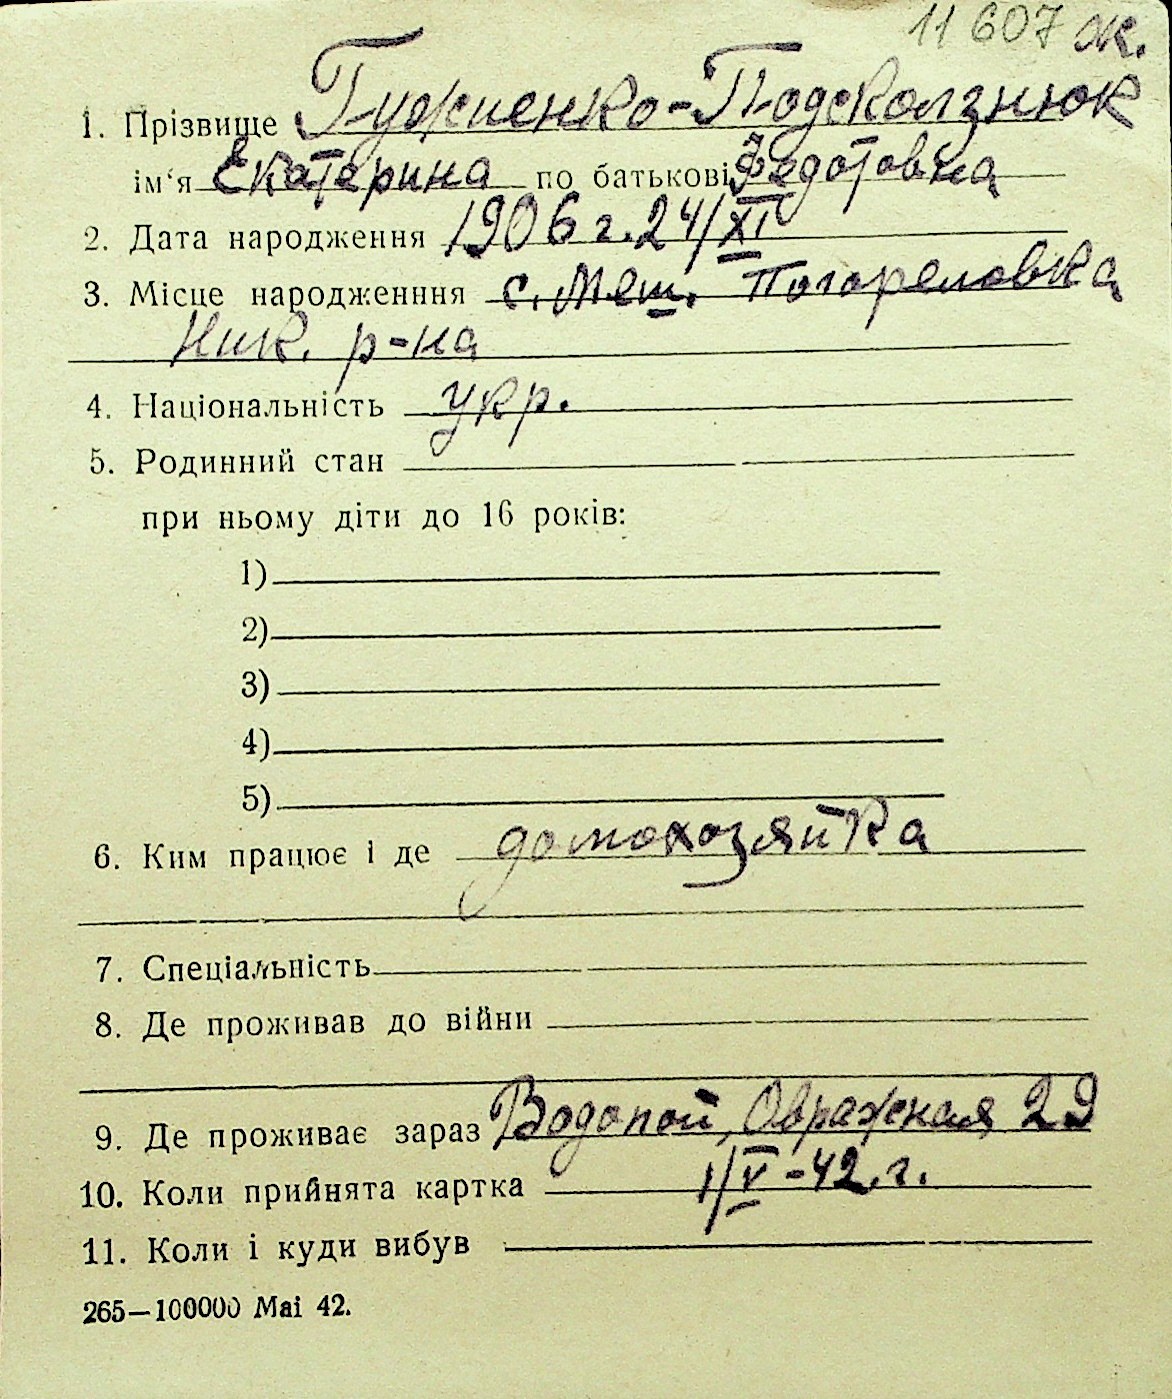 11 607 ж.
1. Прізвище Гужненко-Подсколзнюк
ім‘я Екатерина по батькові Федотовна
2. Дата народження 1906 г. 24/XI
3. Місце народженння с. Меш. Погореловка
Ник. р-на
4. Національність укр.
5. Родинний стан
при ньому діти до 16 років:
1)
2)
3)
4)
5)
6. Ким працює і де домохозяйка
7. Спеціальність
8. Де проживав до війни
9. Де проживає зараз Водопой, Овражная 29
10. Коли прийнята картка 1/V-42.г.
11. Коли і куди вибув
265—100000 Маі 42.